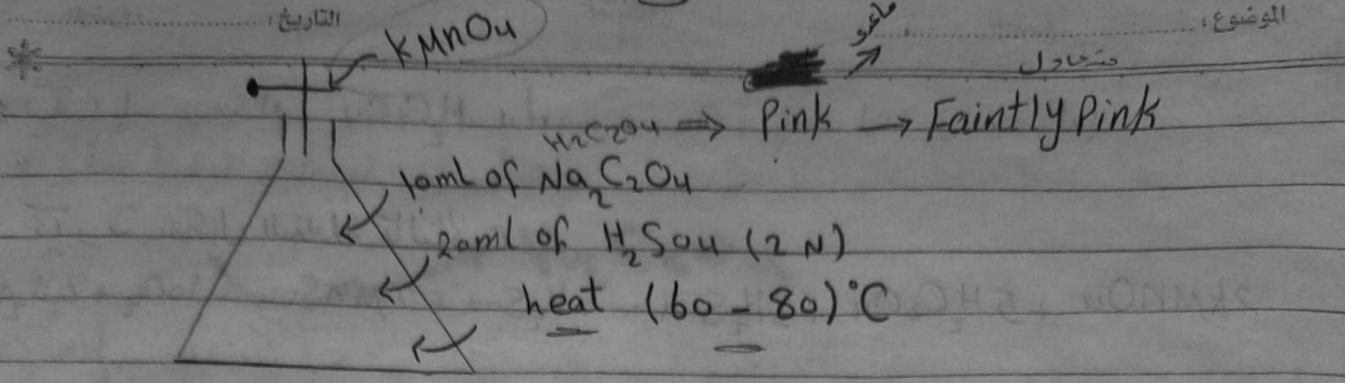 التاريخ: الموضوع:
KMnO4
متعادل
H2C2O4 ⇒ Pink → Faintly Pink
10ml of Na2C2O4
20ml of H2SO4 (2 N)
heat (60 - 80)°C